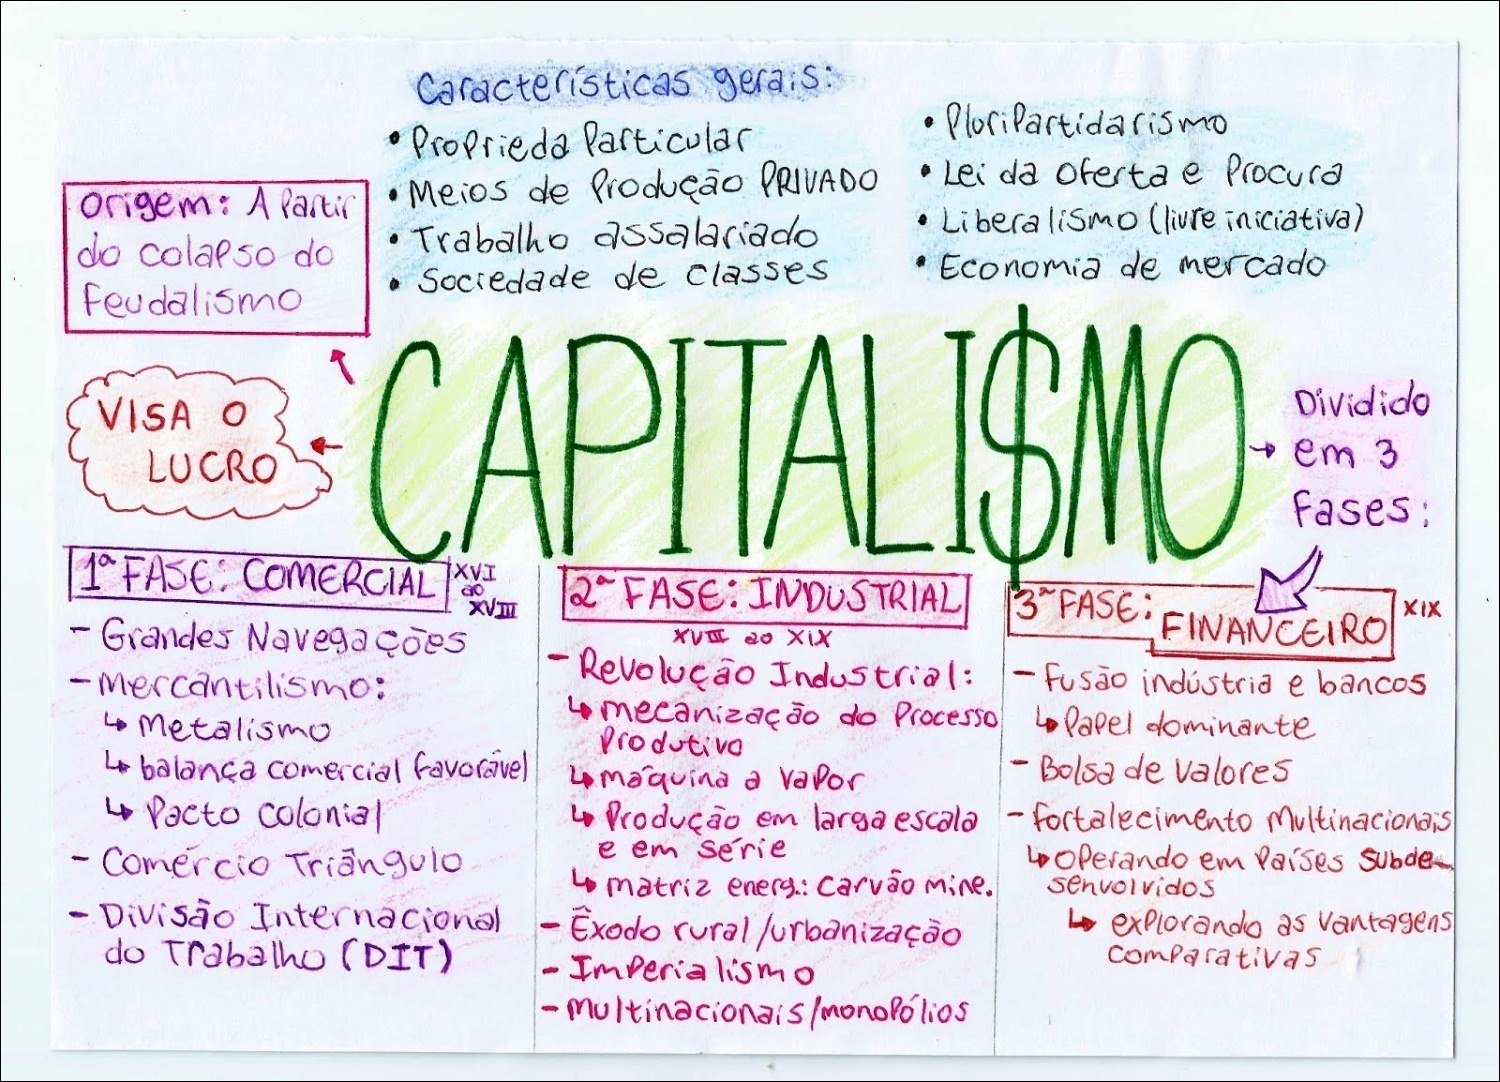 Características gerais:
• Proprieda Particular
• Meios de Produção PRIVADO
• Trabalho assalariado
• Sociedade de classes
• Pluripartidarismo
• Lei da oferta e Procura
• Liberalismo (livre iniciativa)
• Economia de mercado
Origem: A Partir
do colapso do
Feudalismo
VISA O
LUCRO
CAPITALI$MO
Dividido
em 3
Fases:
1ª FASE: COMERCIAL
XVI
ao
XVIII
- Grandes Navegações
- Mercantilismo:
↳ Metalismo
↳ balança comercial favorável
↳ Pacto colonial
- Comércio Triângulo
- Divisão Internacional
do Trabalho (DIT)
2ª FASE: INDUSTRIAL
XVIII ao XIX
- Revolução Industrial:
↳ mecanização do Processo
Produtivo
↳ máquina a vapor
↳ Produção em larga escala
e em série
↳ matriz energ.: carvão mine.
- Êxodo rural/urbanização
- Imperialismo
- Multinacionais/monopólios
3ª FASE:
FINANCEIRO
XIX
- Fusão indústria e bancos
↳ Papel dominante
- Bolsa de valores
- Fortalecimento Multinacionais
↳ operando em Países subde-
senvolvidos
↳ explorando as vantagens
comparativas